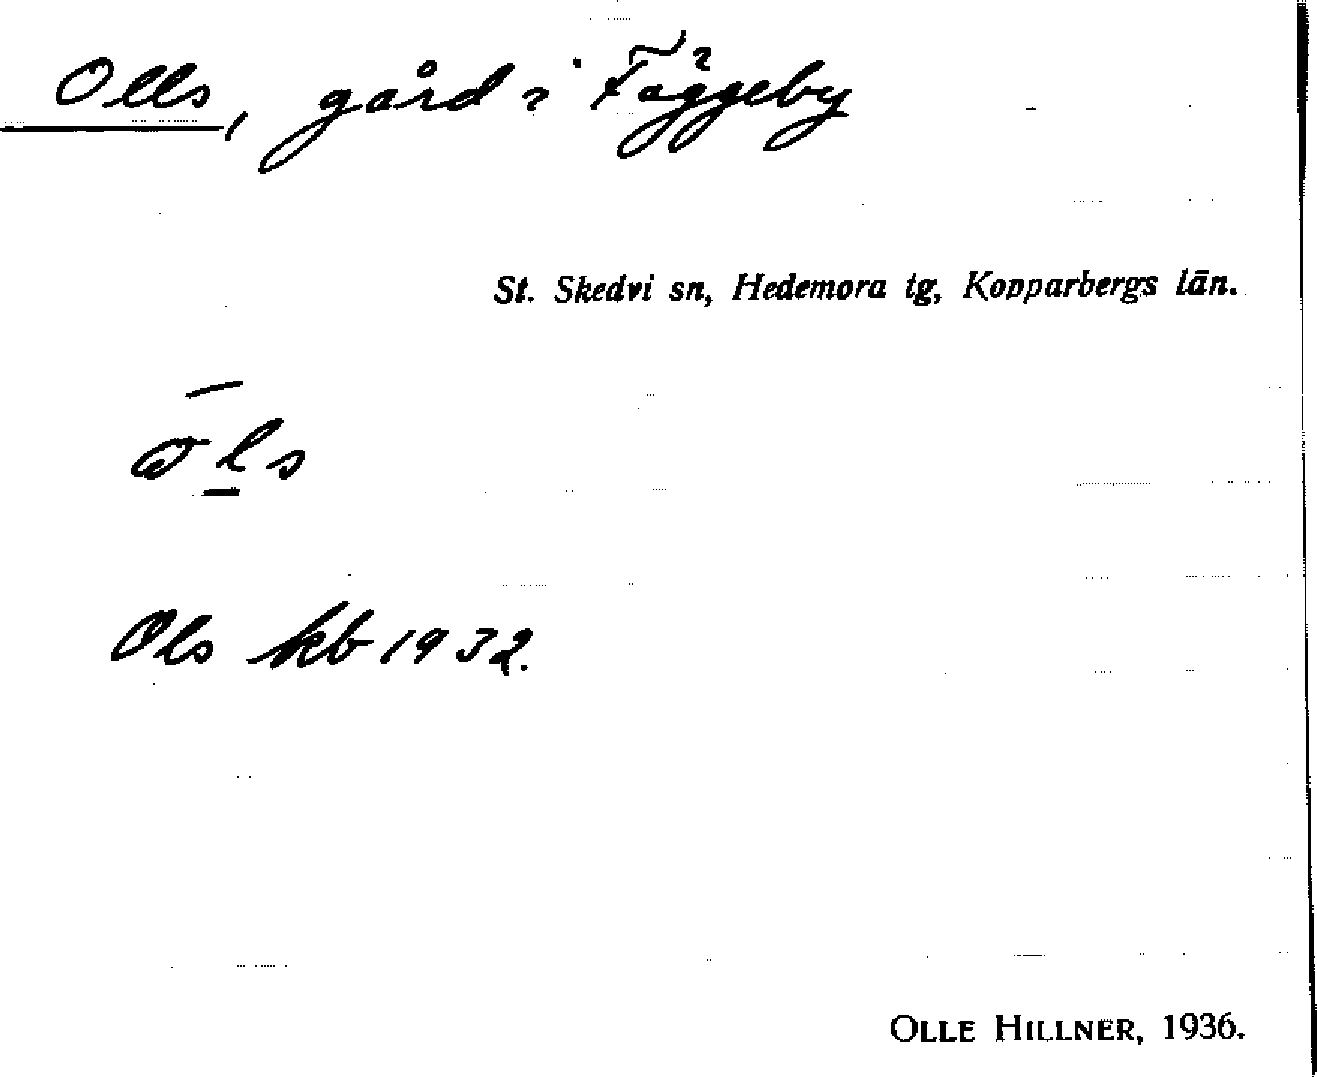 Olls, gård i Fäggeby
St. Skedvi sn, Hedemora tg, Kopparbergs län.
Ols kb 1932.
OLLE HILLNER, 1936.